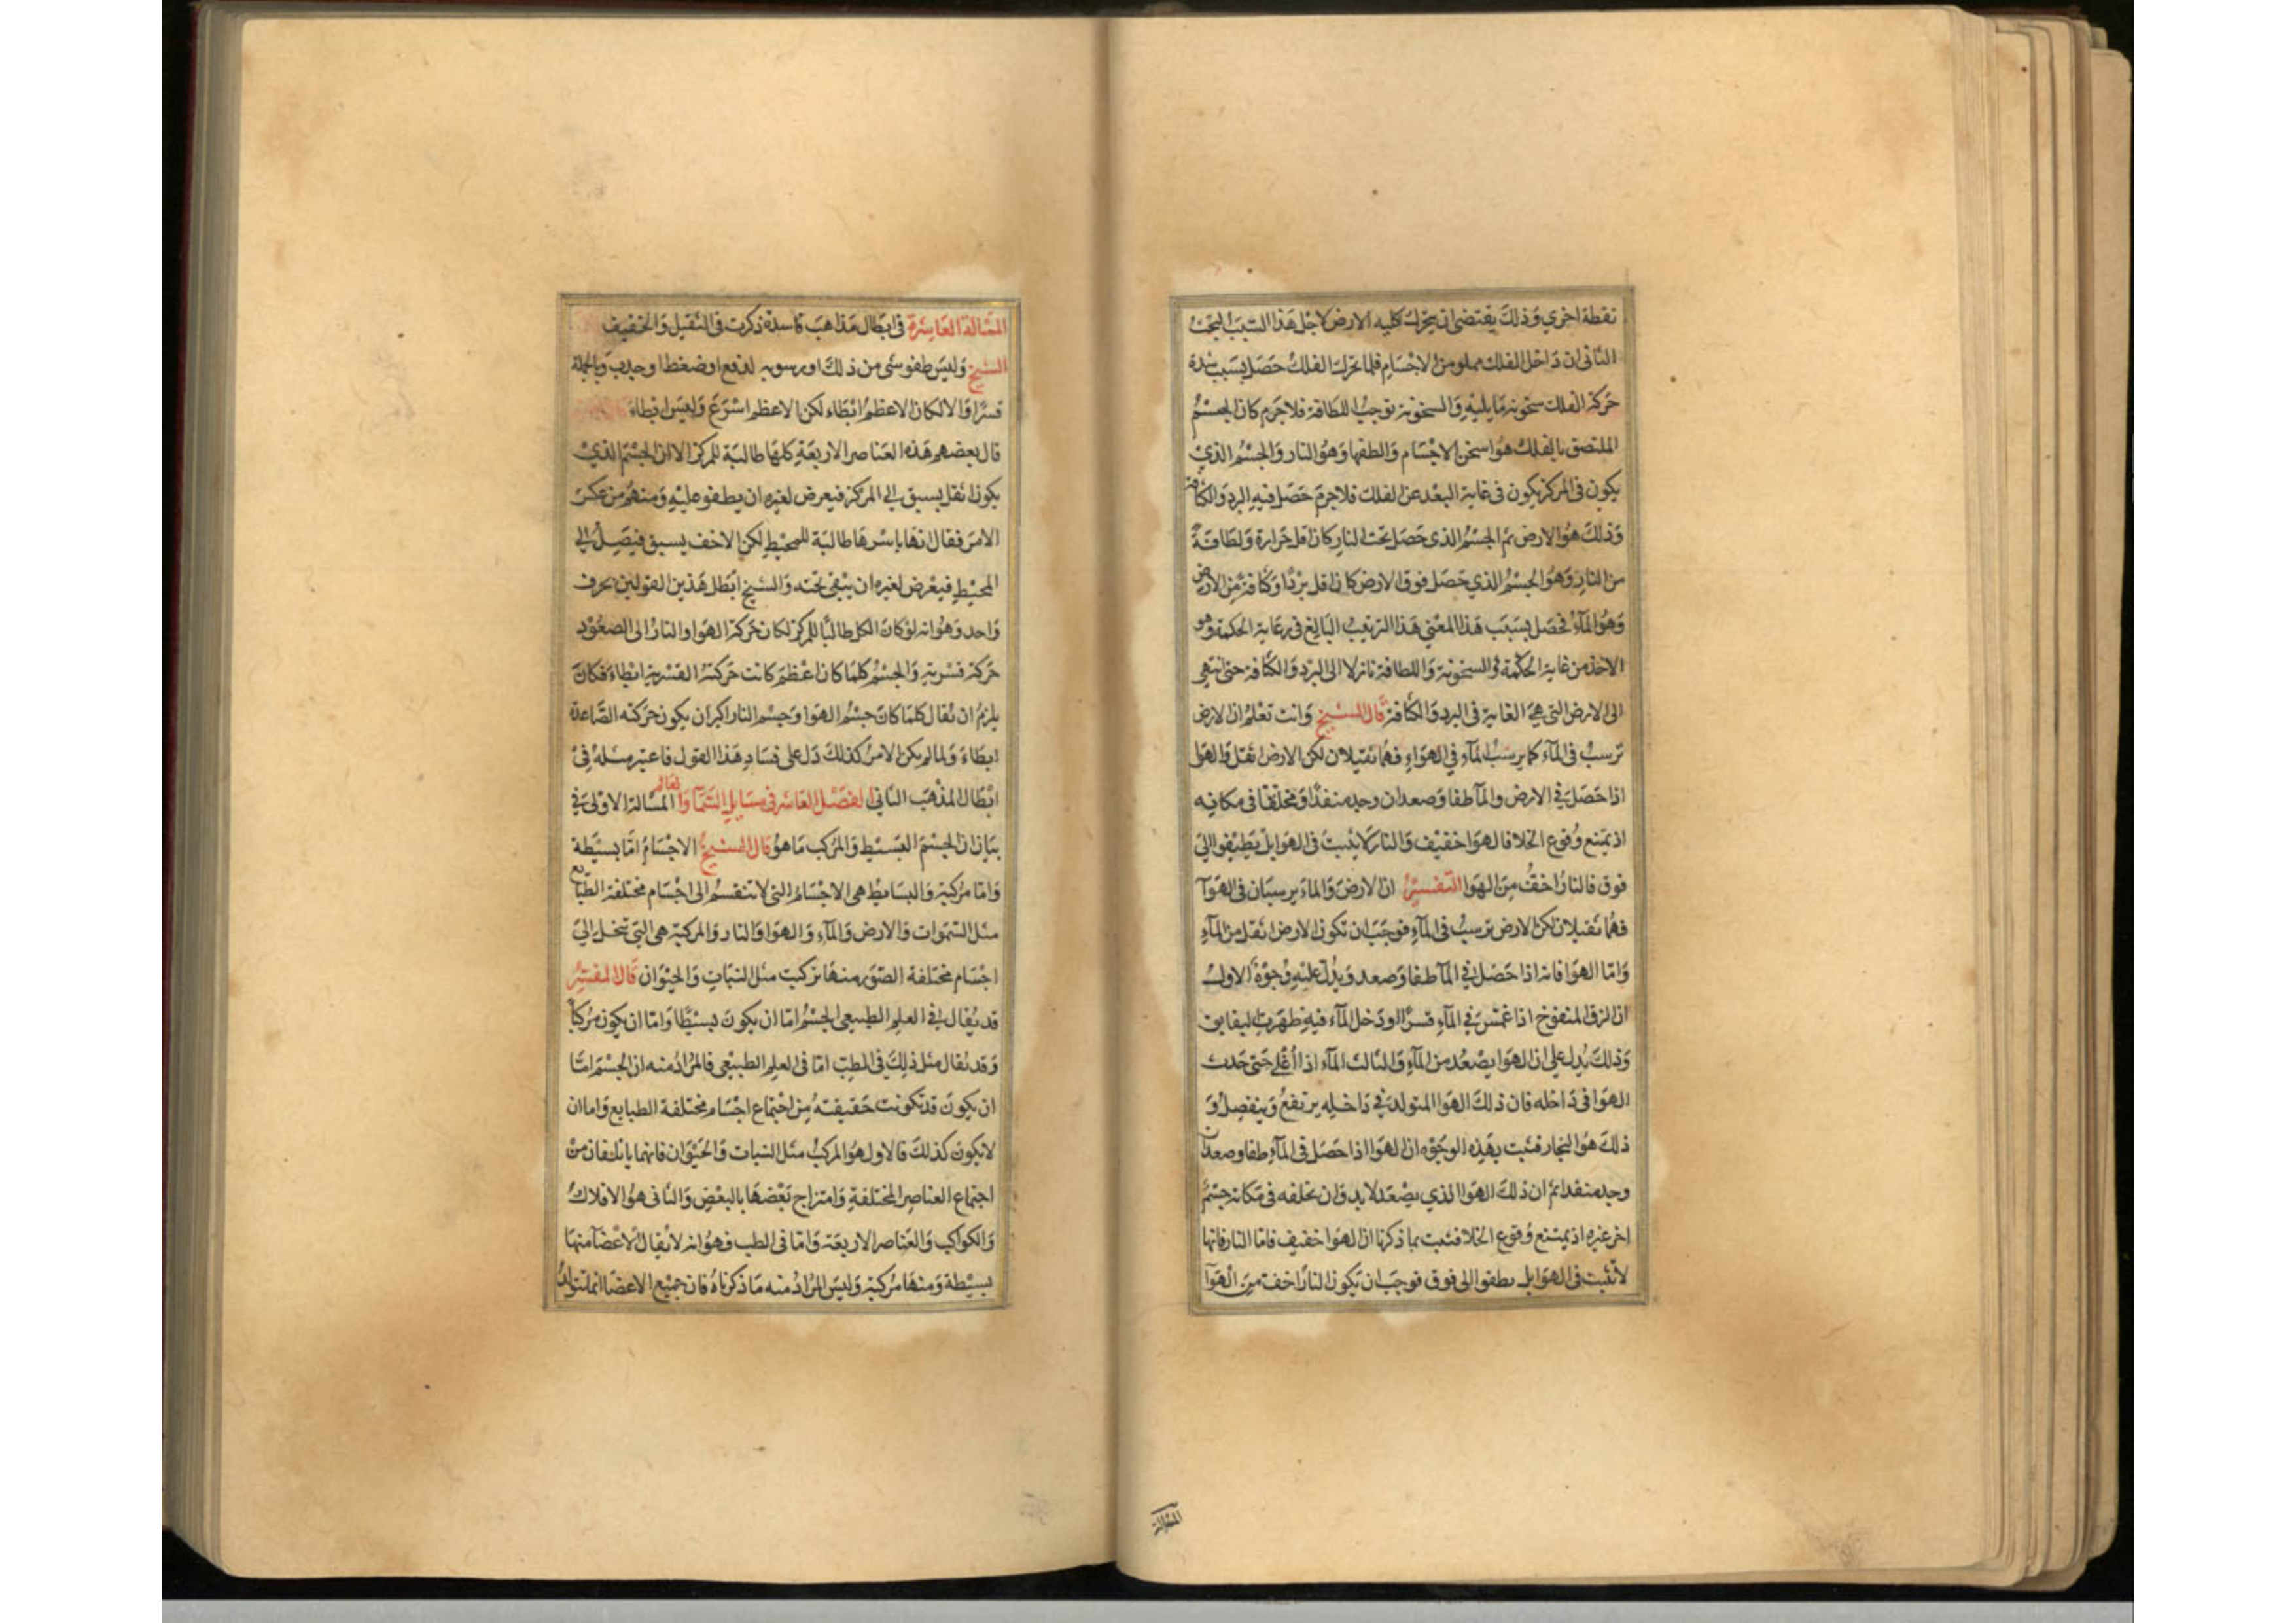 نقطة اخري وذلك يقتضي ان يتحرك كليه الارض لاجل هذا السبب البحث
الثاني ان داخل الفلك مملو من الاجسام فلما تحرك الفلك حصل بسبب شدة
حركة الفلك سخونة ما يليه والسخونة توجب اللطافة فلا جرم كان الجسم
الملتصق بالفلك هو اسخن الاجسام والطفها وهو النار والجسم الذي
يكون في المركز يكون في غاية البعد عن الفلك فلا جرم حصل فيه البرد والكثافة
وذلك هو الارض ثم الجسم الذي حصل تحت النار كان اقل حرارة ولطافة
من النار وهو الجسم الذي حصل فوق الارض كان اقل بردا وكثافة من الارض
وهو المآء فحصل بسبب هذا المعني هذا الترتيب البالغ في رعاية الحكمة وهو
الاخذ من غاية الحكمة في السخونة واللطافة نازلا الى البرد والكثافة حتى تنتهي
الى الارض التي هي الغاية في البرد والكثافة قال الشيخ وانت تعلم ان الارض
ترسب في المآء كما يرسب المآء في الهواء فهما ثقيلان لكن الارض اثقل والهوا
اذا حصل في الارض والمآ طفا وصعد ان وجد منفذا ومخلفا في مكانه
اذ يمتنع وقوع الخلا فالهوا خفيف والنار لا يثبت في الهوا بل يطفوا الى
فوق فالنار اخف من الهوا التفسير ان الارض والماء يرسبان في الهوآ
فهما ثقيلان لكن الارض ترسب في المآء فوجب ان تكون الارض اثقل من المآء
واما الهوا فانه اذا حصل في المآ طفا وصعد ويدل عليه وجوه الاول
ان الزق المنفوخ اذا غمس في المآء قسرا لو دخل المآء فيه ظهرت
وذلك يدل على ان الهوا يصعد من المآء والثالث المآء اذا اغلي حتى حدث
الهوا في داخله فان ذلك الهوا المتولد في داخله يرتفع وينفصل و
ذلك هو البخار فثبت بهذه الوجوه ان الهوا اذا حصل في المآء طفا وصعد ان
وجد منفدا ثم ان ذلك الهوا الذي يصعد لا بد وان يخلفه في مكانه جسم
اخر غيره اذ يمتنع وقوع الخلا فثبت بما ذكرنا ان الهوا خفيف فاما النار فانها
لا تثبت في الهوا بل يطفوا الى فوق فوجب ان تكون النار اخف من الهوآ
المسالة
المسالة العاشرة في ابطال مذاهب فاسدة ذكرت في الثقيل والخفيف
الشيخ وليس طفو شي من ذلك او رسوبه لدفع او ضغط او جذب وبالجملة
قسرا والا لكان الاعظم ابطاء لكن الاعظم اسرع وليس ابطاء
قال بعضهم هذه العناصر الاربعة كلها طالبة للمركز الا ان الجسم الذي
يكون اثقل يسبق الى المركز فيعرض لغيره ان يطفو عليه ومنهم من عكس
الامر فقال انها باسرها طالبة للمحيط لكن الاخف يسبق فيصل الى
المحيط فيعرض لغيره ان يبقي تحته والشيخ ابطل هذين القولين بحرف
واحد وهو انه لو كان الكل طالبا للمركز لكان حركة الهوا والنار الى الصعود
حركة قسرية والجسم كلما كان اعظم كانت حركته القسرية ابطاء فكان
يلزم ان يقال كلما كان جسم الهوا وجسم النار اكبر ان يكون حركته الصاعدة
ابطاء ولما لم يكن الامر كذلك دل على فساد هذا القول فاعتبر مثله في
ابطال المذهب الثاني الفصل العاشر في مسايل السما والعالم المسالة الاولى في
بيان ان الجسم البسيط والمركب ما هو قال الشيخ الاجسام اما بسيطة
واما مركبة والبسايط هي الاجسام التي لا تنقسم الى اجسام مختلفة الطبايع
مثل السموات والارض والمآء والهوا والنار والمركبة هي التي تنحل الى
اجسام مختلفة الصور منها تركبت مثل النبات والحيوان قال المفسر
قد يقال في العلم الطبيعي الجسم اما ان يكون بسيطا واما ان يكون مركبا
وقد يقال مثل ذلك في الطب اما في العلم الطبيعي فالمراد منه ان الجسم اما
ان يكون قد تكونت حقيقته من اجتماع اجسام مختلفة الطبايع واما ان
لا يكون كذلك فالاول هو المركب مثل النبات والحيوان فانهما ياتلفان من
اجتماع العناصر المختلفة وامتزاج بعضها بالبعض والثاني هو الافلاك
والكواكب والعناصر الاربعة واما في الطب فهو انه يقال الاعضآ منها
بسيطة ومنها مركبة وليس المراد منه ما ذكرناه فان جميع الاعضا انما تتولد